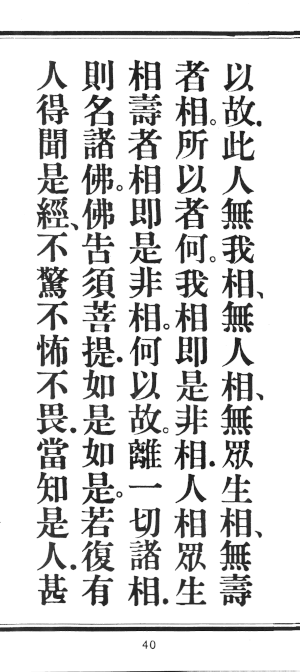 以故．此人無我相、無人相、無眾生相、無壽
者相。所以者何。我相即是非相．人相眾生
相壽者相即是非相。何以故。離一切諸相．
則名諸佛。佛告須菩提．如是如是。若復有
人得聞是經、不驚不怖不畏．當知是人．甚
40